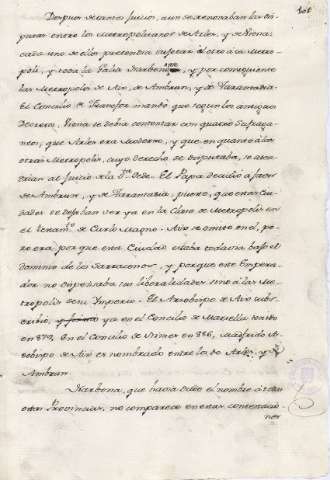 101
Despues de tantos Juicios, aun se renovaban las dis-
putas entre los Metropolitanos de Arles, y de Viena;
cada uno de ellos pretendia sugetar al otro a su Metro-
poli, y toda la Galia Narbonense, y por consiguiente
las Metropolis de Aix, de Ambrun, y de Tarantasia.
El Concilio de Francfor mandó que segun los antiguos
Decretos, Viena se debia contentar con quatro Sufraga-
neos, que Arles era Moderno, y que en quanto á las
otras Metropolis, cuyo derecho se disputaba, se aten-
drian al Juicio de la Sta. Sede. El Papa decidio a favor
de Ambrun, y de Tarantasia, puesto, que estas Ciu-
dades se dejaban ver ya en la Clase de Metropolis en
el Testamto. de Carlo Magno. Aix se omite en el, pe-
ro era, por que esta Ciudad estaba todavia bajo el
dominio de los Sarracenos, y porque este Empera-
dor no dispensaba sus liberalidades sino á las Me-
tropolis de su Imperio. El Arzobispo de Aix subs-
cribio, ya en el Concilio de Marsella tenido
en 879. En el Concilio de Nimes en 886, Madfrido Ar-
zobispo de Aix es nombrado entre los de Arles, y
Ambrun.
Narbona, que havia dado el nombre á todas
estas Provincias, no comparece en estas contestacio-
nes